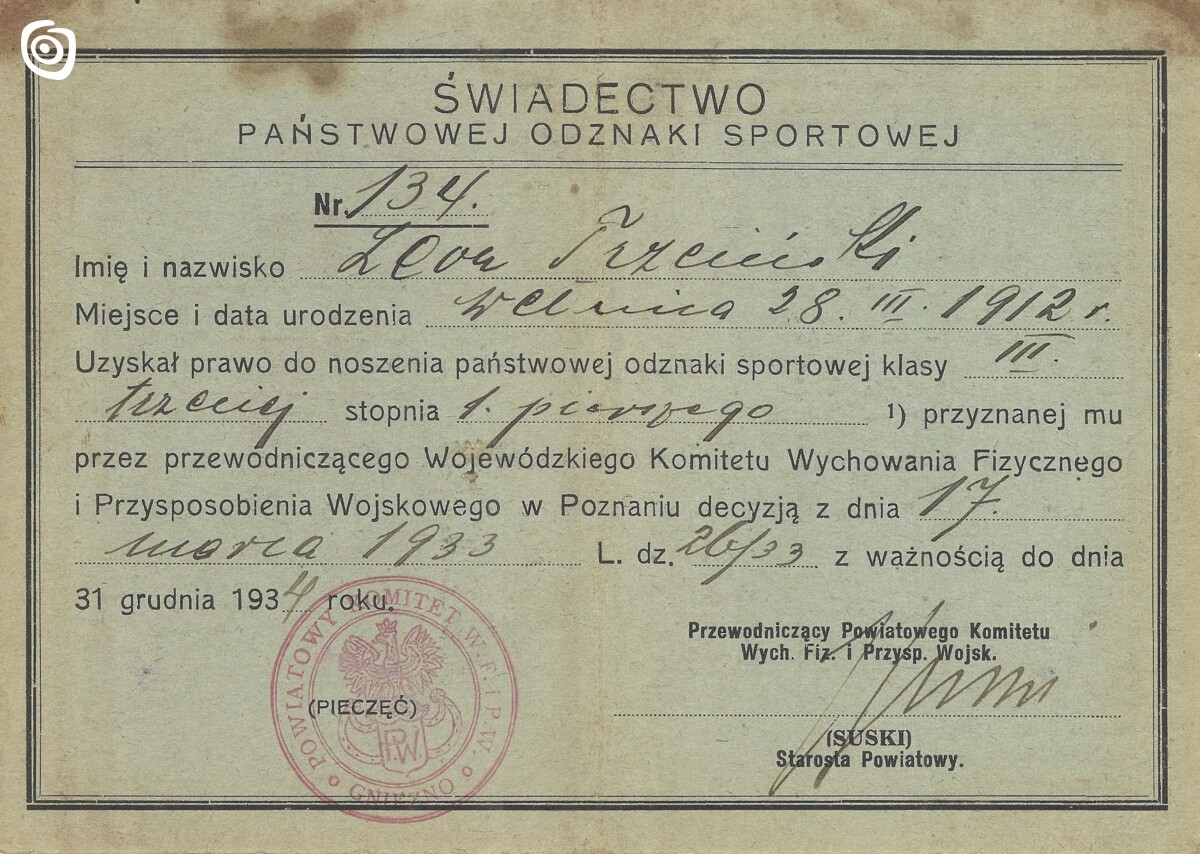 ŚWIADECTWO
PAŃSTWOWEJ ODZNAKI SPORTOWEJ
Nr. 134.
Imię i nazwisko Leon Trzciński
Miejsce i data urodzenia Wełnica 28. III. 1912 r.
Uzyskał prawo do noszenia państwowej odznaki sportowej klasy III.
trzeciej stopnia 1. pierwszego ¹) przyznanej mu
przez przewodniczącego Wojewódzkiego Komitetu Wychowania Fizycznego
i Przysposobienia Wojskowego w Poznaniu decyzją z dnia 17.
marca 1933 L. dz. 26/33 z ważnością do dnia
31 grudnia 1934 roku.
POWIATOWY KOMITET W.F. i P.W.
GNIEZNO
P.W
(PIECZĘĆ)
Przewodniczący Powiatowego Komitetu
Wych. Fiz. i Przysp. Wojsk.
(SUSKI)
Starosta Powiatowy.